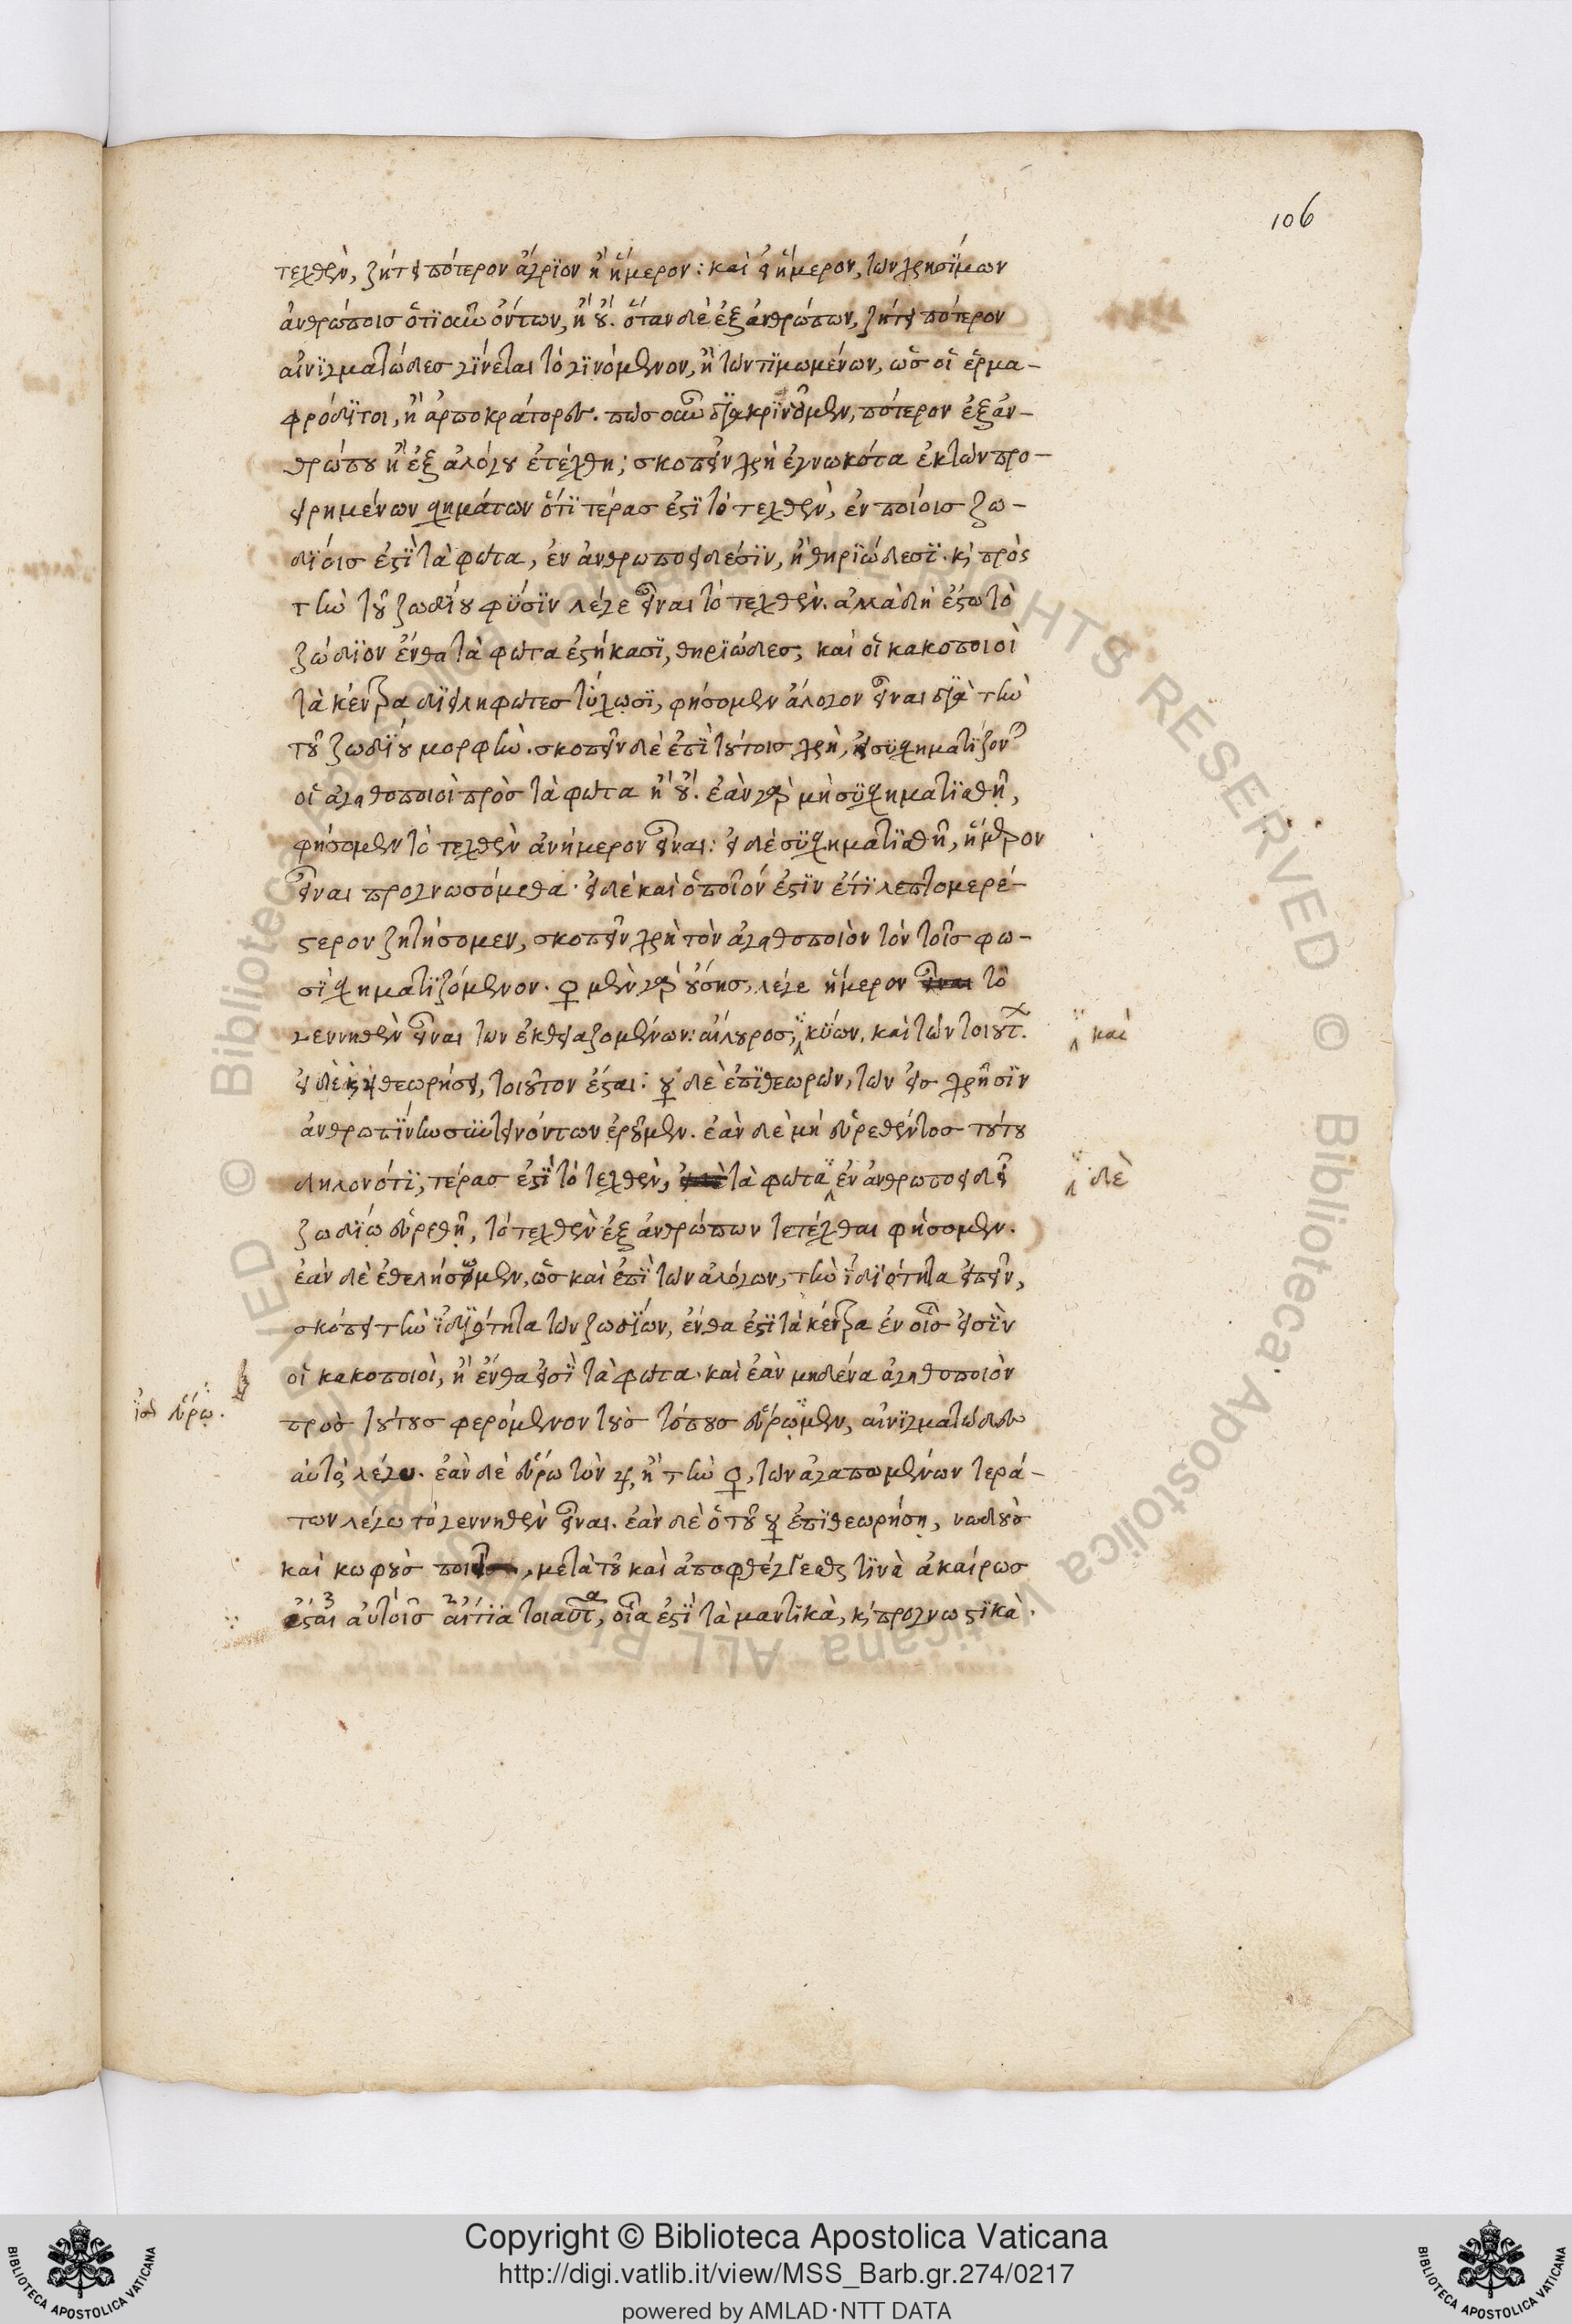 106
τεχθὲν, ζήτει πότερον ἄγριον ἢ ἥμερον: καὶ εἰ ἥμερον, τῶν χρησίμων
ἀνθρώποις ὁτιοῦν ὄντων, ἢ οὔ. ὅταν δὲ ἐξ ἀνθρώπων, ζήτει πότερον
αἰνιγματῶδες γίνεται τὸ γινόμενον, ἢ τῶν τιμωμένων, ὡς οἱ ἑρμα-
φρόδιτοι, ἢ ἁρποκράτορες. πῶς οὖν διακρίνομεν, πότερον ἐξ ἀν-
θρώπου ἢ ἐξ ἀλόγου ἐτέχθη; σκοπεῖν χρὴ ἐγνωκότα ἐκ τῶν προ-
ειρημένων σχημάτων ὅτι τέρας ἐστὶ τὸ τεχθὲν, ἐν ποίοις ζω-
δίοις ἐστὶ τὰ φῶτα, ἐν ἀνθρωποειδέσιν, ἢ θηριώδεσι. καὶ πρὸς
τὴν τοῦ ζωδίου φύσιν λέγε εἶναι τὸ τεχθὲν. ἀλλὰ δὴ ἔστω τὸ
ζώδιον ἔνθα τὰ φῶτα ἑστήκασι, θηριῶδες, καὶ οἱ κακοποιοὶ
τὰ κέντρα διειληφότες τύχωσι, φήσομεν ἄλογον εἶναι διὰ τὴν
τοῦ ζωδίου μορφὴν. σκοπεῖν δὲ ἐπὶ τούτοις χρὴ, εἰ συσχηματίζον
οἱ ἀγαθοποιοὶ πρὸς τὰ φῶτα ἢ οὔ. ἐὰν γὰρ μὴ συσχηματισθῇ,
φήσομεν τὸ τεχθὲν ἀνήμερον εἶναι: εἰ δὲ συσχηματισθῇ, ἥμερον
εἶναι προγνωσόμεθα. εἰ δὲ καὶ ὁποῖόν ἐστιν ἔτι λεπτομερέ-
στερον ζητήσομεν, σκοπεῖν χρὴ τὸν ἀγαθοποιὸν τὸν τοῖς φω-
σὶ σχηματιζόμενον. ♀ μὲν γὰρ οὔσης, λέγε ἥμερον τὸ
γεννηθὲν εἶναι τῶν ἐκθειαζομένων: αἴλουρος, κύων, καὶ τῶν τοιούτ.
καὶ
θεωρήσει, τοιοῦτον ἔσται: ☿ δὲ ἐπιθεωρῶν, τῶν εἰς χρῆσιν
ἀνθρωπίνην συντεινόντων ἐροῦμεν. ἐὰν δὲ μὴ εὑρεθέντος τούτου
δηλονότι, τέρας ἐστὶ τὸ τεχθὲν, τὰ φῶτα ἐν ἀνθρωποειδεῖ
δὲ
ζωδίῳ εὑρεθῇ, τὸ τεχθὲν ἐξ ἀνθρώπων τετέχθαι φήσομεν.
ἐὰν δὲ ἐθελήσωμεν, ὡς καὶ ἐπὶ τῶν ἀλόγων, τὴν ἰδιότητα εἰπεῖν,
σκόπει τὴν ἰδιότητα τῶν ζωδίων, ἔνθα ἐστὶ τὰ κέντρα ἐν οἷς εἰσὶν
οἱ κακοποιοὶ, ἢ ἔνθα εἰσὶ τὰ φῶτα. καὶ ἐὰν μηδένα ἀγαθοποιὸν
πρὸς τούτους φερόμενον τοὺς τόπους εὕρωμεν, αἰνιγματῶδες
ἴσ εὕρω.
αὐτὸ λέγω. ἐὰν δὲ εὕρω τὸν ♃, ἢ τὴν ♀, τῶν ἀγαπωμένων τερά-
των λέγω τὸ γεννηθὲν εἶναι. ἐὰν δὲ ὁ τοῦ ☿ ἐπιθεωρήσῃ, νωδοὺς
καὶ κωφοὺς ποιεῖ, μετὰ τοῦ καὶ ἀποφθέγγεσθαι τινὰ ἀκαίρως
ἔσται αὐτοῖς αἰτία τοιαῦτα, οἷα ἐστὶ τὰ μαντικὰ, καὶ προγνωστικὰ.
Copyright © Biblioteca Apostolica Vaticana
http://digi.vatlib.it/view/MSS_Barb.gr.274/0217
powered by AMLAD·NTT DATA